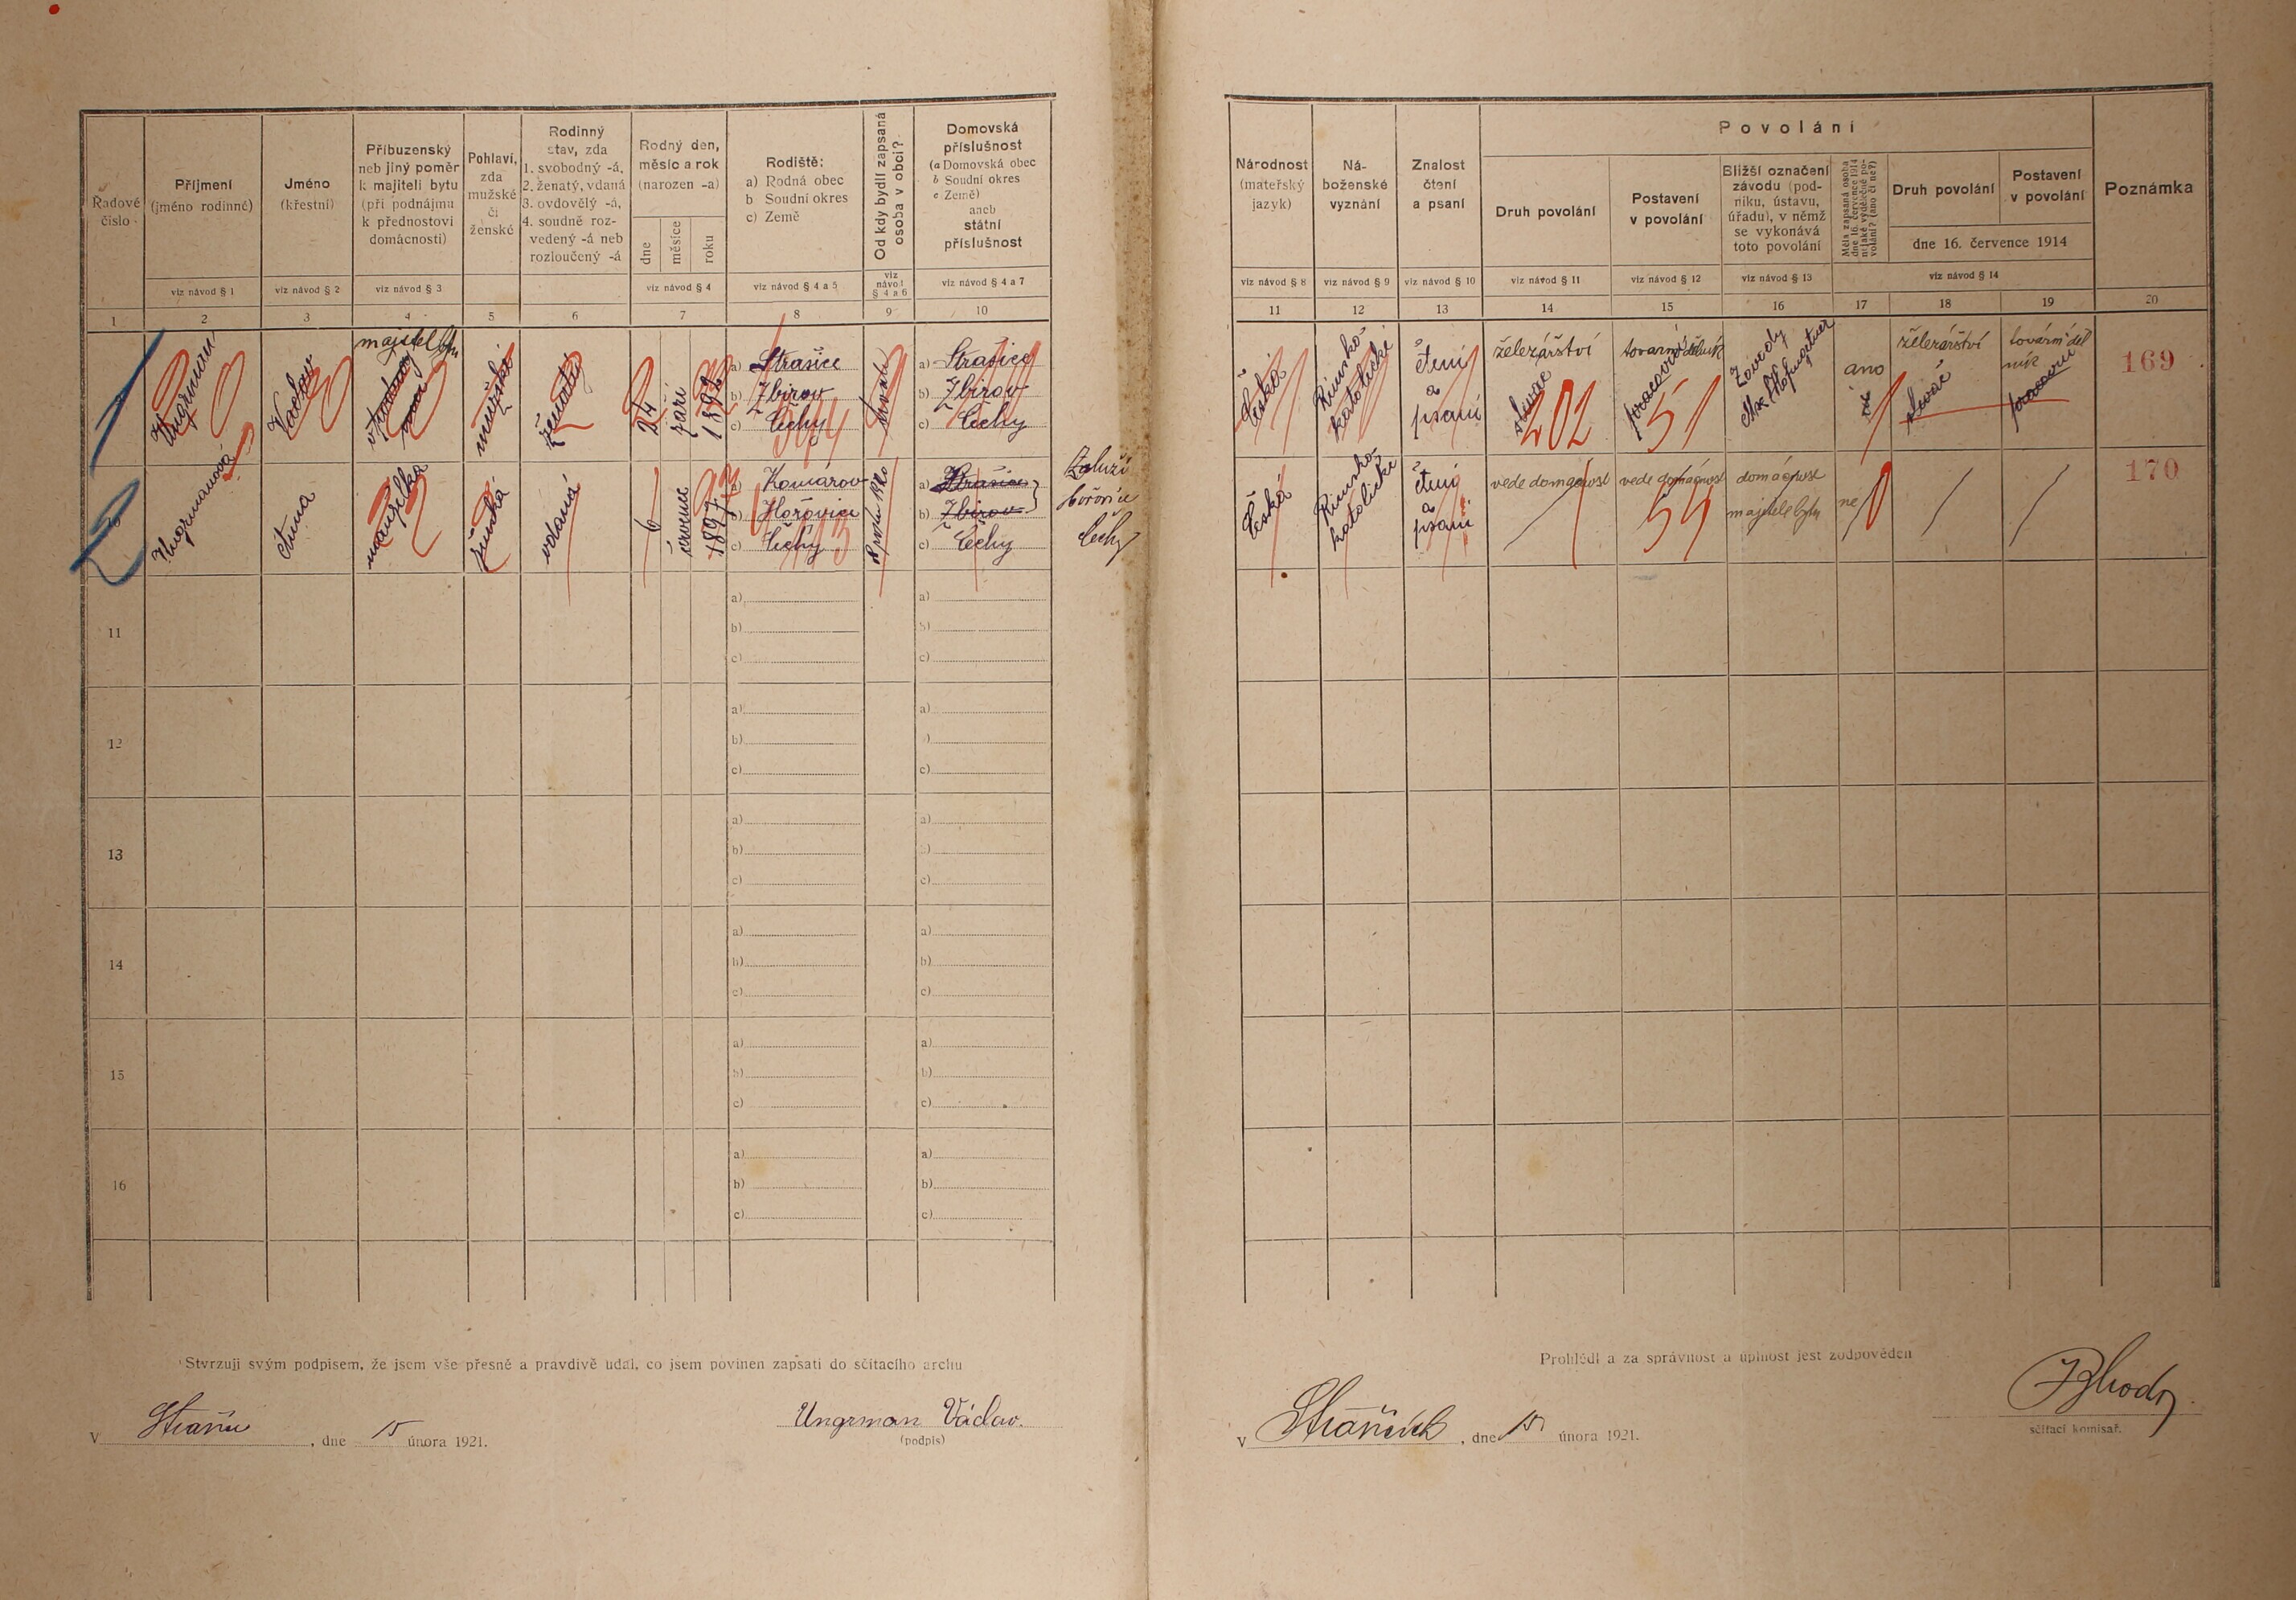 Řadové číslo
Příjmení (jméno rodinné)
Jméno (křestní)
Příbuzenský neb jiný poměr k majiteli bytu (při podnájmu k přednostovi domácnosti)
Pohlaví, zda mužské či ženské
Rodinný stav, zda 1. svobodný -á, 2. ženatý, vdaná 3. ovdovělý -á, 4. soudně rozvedený -á neb rozloučený -á
Rodný den, měsíc a rok (narozen -a)
dne
měsíce
roku
Rodiště:
a) Rodná obec
b Soudní okres
c) Země
Od kdy bydlí zapsaná osoba v obci?
Domovská příslušnost
(a Domovská obec
b Soudní okres
c Země)
aneb státní příslušnost
viz návod § 1
viz návod § 2
viz návod § 3
viz návod § 4
viz návod § 4 a 5
viz návod § 4 a 6
viz návod § 4 a 7
1 2 3 4 5 6 7 8 9 10
Národnost (mateřský jazyk)
Náboženské vyznání
Znalost čtení a psaní
Povolání
Druh povolání
Postavení v povolání
Bližší označení závodu (podniku, ústavu, úřadu), v němž se vykonává toto povolání
Měla zapsaná osoba dne 16. července 1914 nějaké výdělečné povolání? (ano či ne?)
Druh povolání
Postavení v povolání
dne 16. července 1914
Poznámka
viz návod § 8
viz návod § 9
viz návod § 10
viz návod § 11
viz návod § 12
viz návod § 13
viz návod § 14
11 12 13 14 15 16 17 18 19 20
1
Ungrman
Václav
majitel bytu
mužské
ženatý
24
září
1892
a) Strašice
b) Zbirov
c) Čechy
a) Strašice
b) Zbirov
c) Čechy
Česká
Římsko katolické
čtení a psaní
železářství
slévač
202
tovární dělník
51
Závody
ano
železářství
slévač
tovární dělník
169
2
Ungrmanová
Anna
manželka
ženská
vdaná
6
července
1897
a) Komárov
b) Hořovice
c) Čechy
a) Strašice
b) Zbirov
c) Čechy
Zaluží
Hořovice
Čechy
Česká
Římsko-katolické
čtení a psaní
vede domácnost
vede domácnost
54
domácnost
majitele bytu
ne
170
11
a)
b)
c)
12
a)
b)
c)
13
a)
b)
c)
14
a)
b)
c)
15
a)
b)
c)
16
a)
b)
c)
Stvrzuji svým podpisem, že jsem vše přesně a pravdivě udal, co jsem povinen zapsati do sčítacího archu
V Strašice, dne 15 února 1921.
Ungrman Václav.
(podpis)
Prohlédl a za správnost a úplnost jest zodpověden
V Strašicích, dne 15 února 1921.
sčítací komisař.